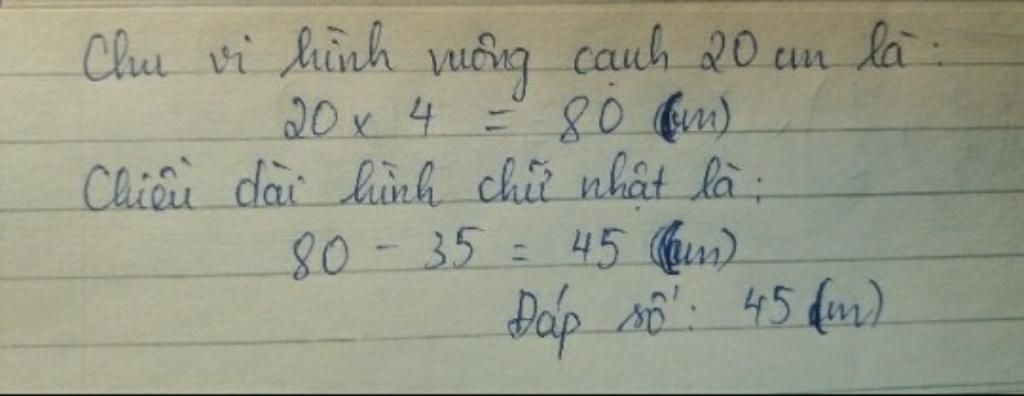 Chu vi hình vuông cạnh 20 cm là:
20 x 4 = 80 (cm)
Chiều dài hình chữ nhật là:
80 - 35 = 45 (cm)
Đáp số: 45 (cm)